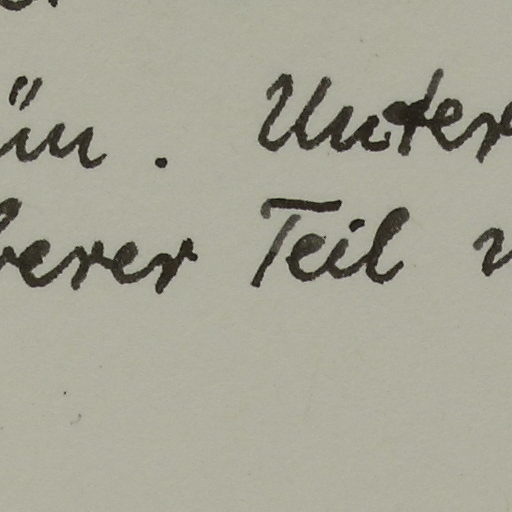 ün. Unter
berer Teil